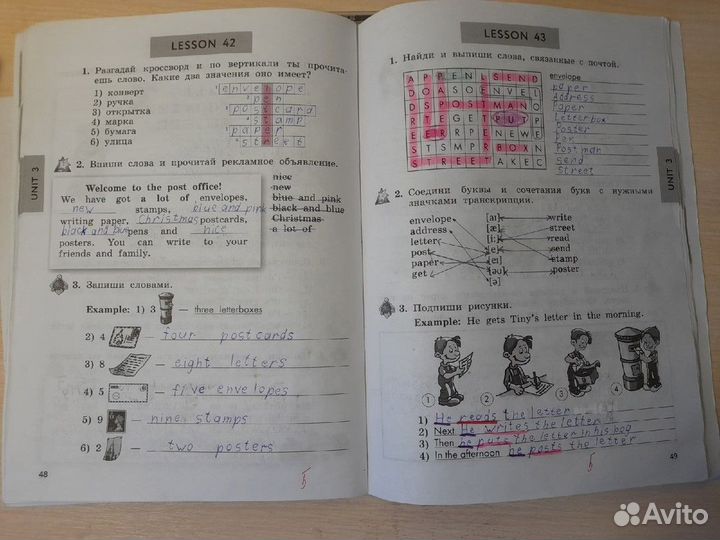 LESSON 42
1. Разгадай кроссворд и по вертикали ты прочита-
ешь слово. Какие два значения оно имеет?
1) конверт
2) ручка
3) открытка
4) марка
5) бумага
6) улица
envelope
pen
postcard
stamp
paper
street
UNIT 3
2. Впиши слова и прочитай рекламное объявление.
Welcome to the post office!
We have got a lot of envelopes,
new stamps, blue and pink
writing paper, Christmas postcards,
black and blue pens and nice
posters. You can write to your
friends and family.
nice
new
blue and pink
black and blue
Christmas
a lot of
3. Запиши словами.
Example: 1) 3 — three letterboxes
2) 4 — four postcards
3) 8 — eight letters
4) 5 — five envelopes
5) 9 — nine stamps
6) 2 — two posters
48
5
LESSON 43
1. Найди и выпиши слова, связанные с почтой.
A P P E N L S E N D
D O A S O E N V E L
D S P O S T M A N O
R T E G E T P U T P
E E R R P E N N E W E
S T S M P R B O X N
S T R E E T A K E C
envelope
paper
Address
Letterbox
Poster
Pen
Postman
Send
Street
UNIT 3
2. Соедини буквы и сочетания букв с нужными
значками транскрипции.
envelope [aɪ] write
address [æ] street
letter [i:] read
post [e] send
paper [eɪ] stamp
get [əu] poster
[ə]
3. Подпиши рисунки.
Example: He gets Tiny's letter in the morning.
1 2 3 4
1) He reads the letter
2) Next He writes the letter
3) Then he puts the letter in his bag
4) In the afternoon he posts the letter
49
5
Avito